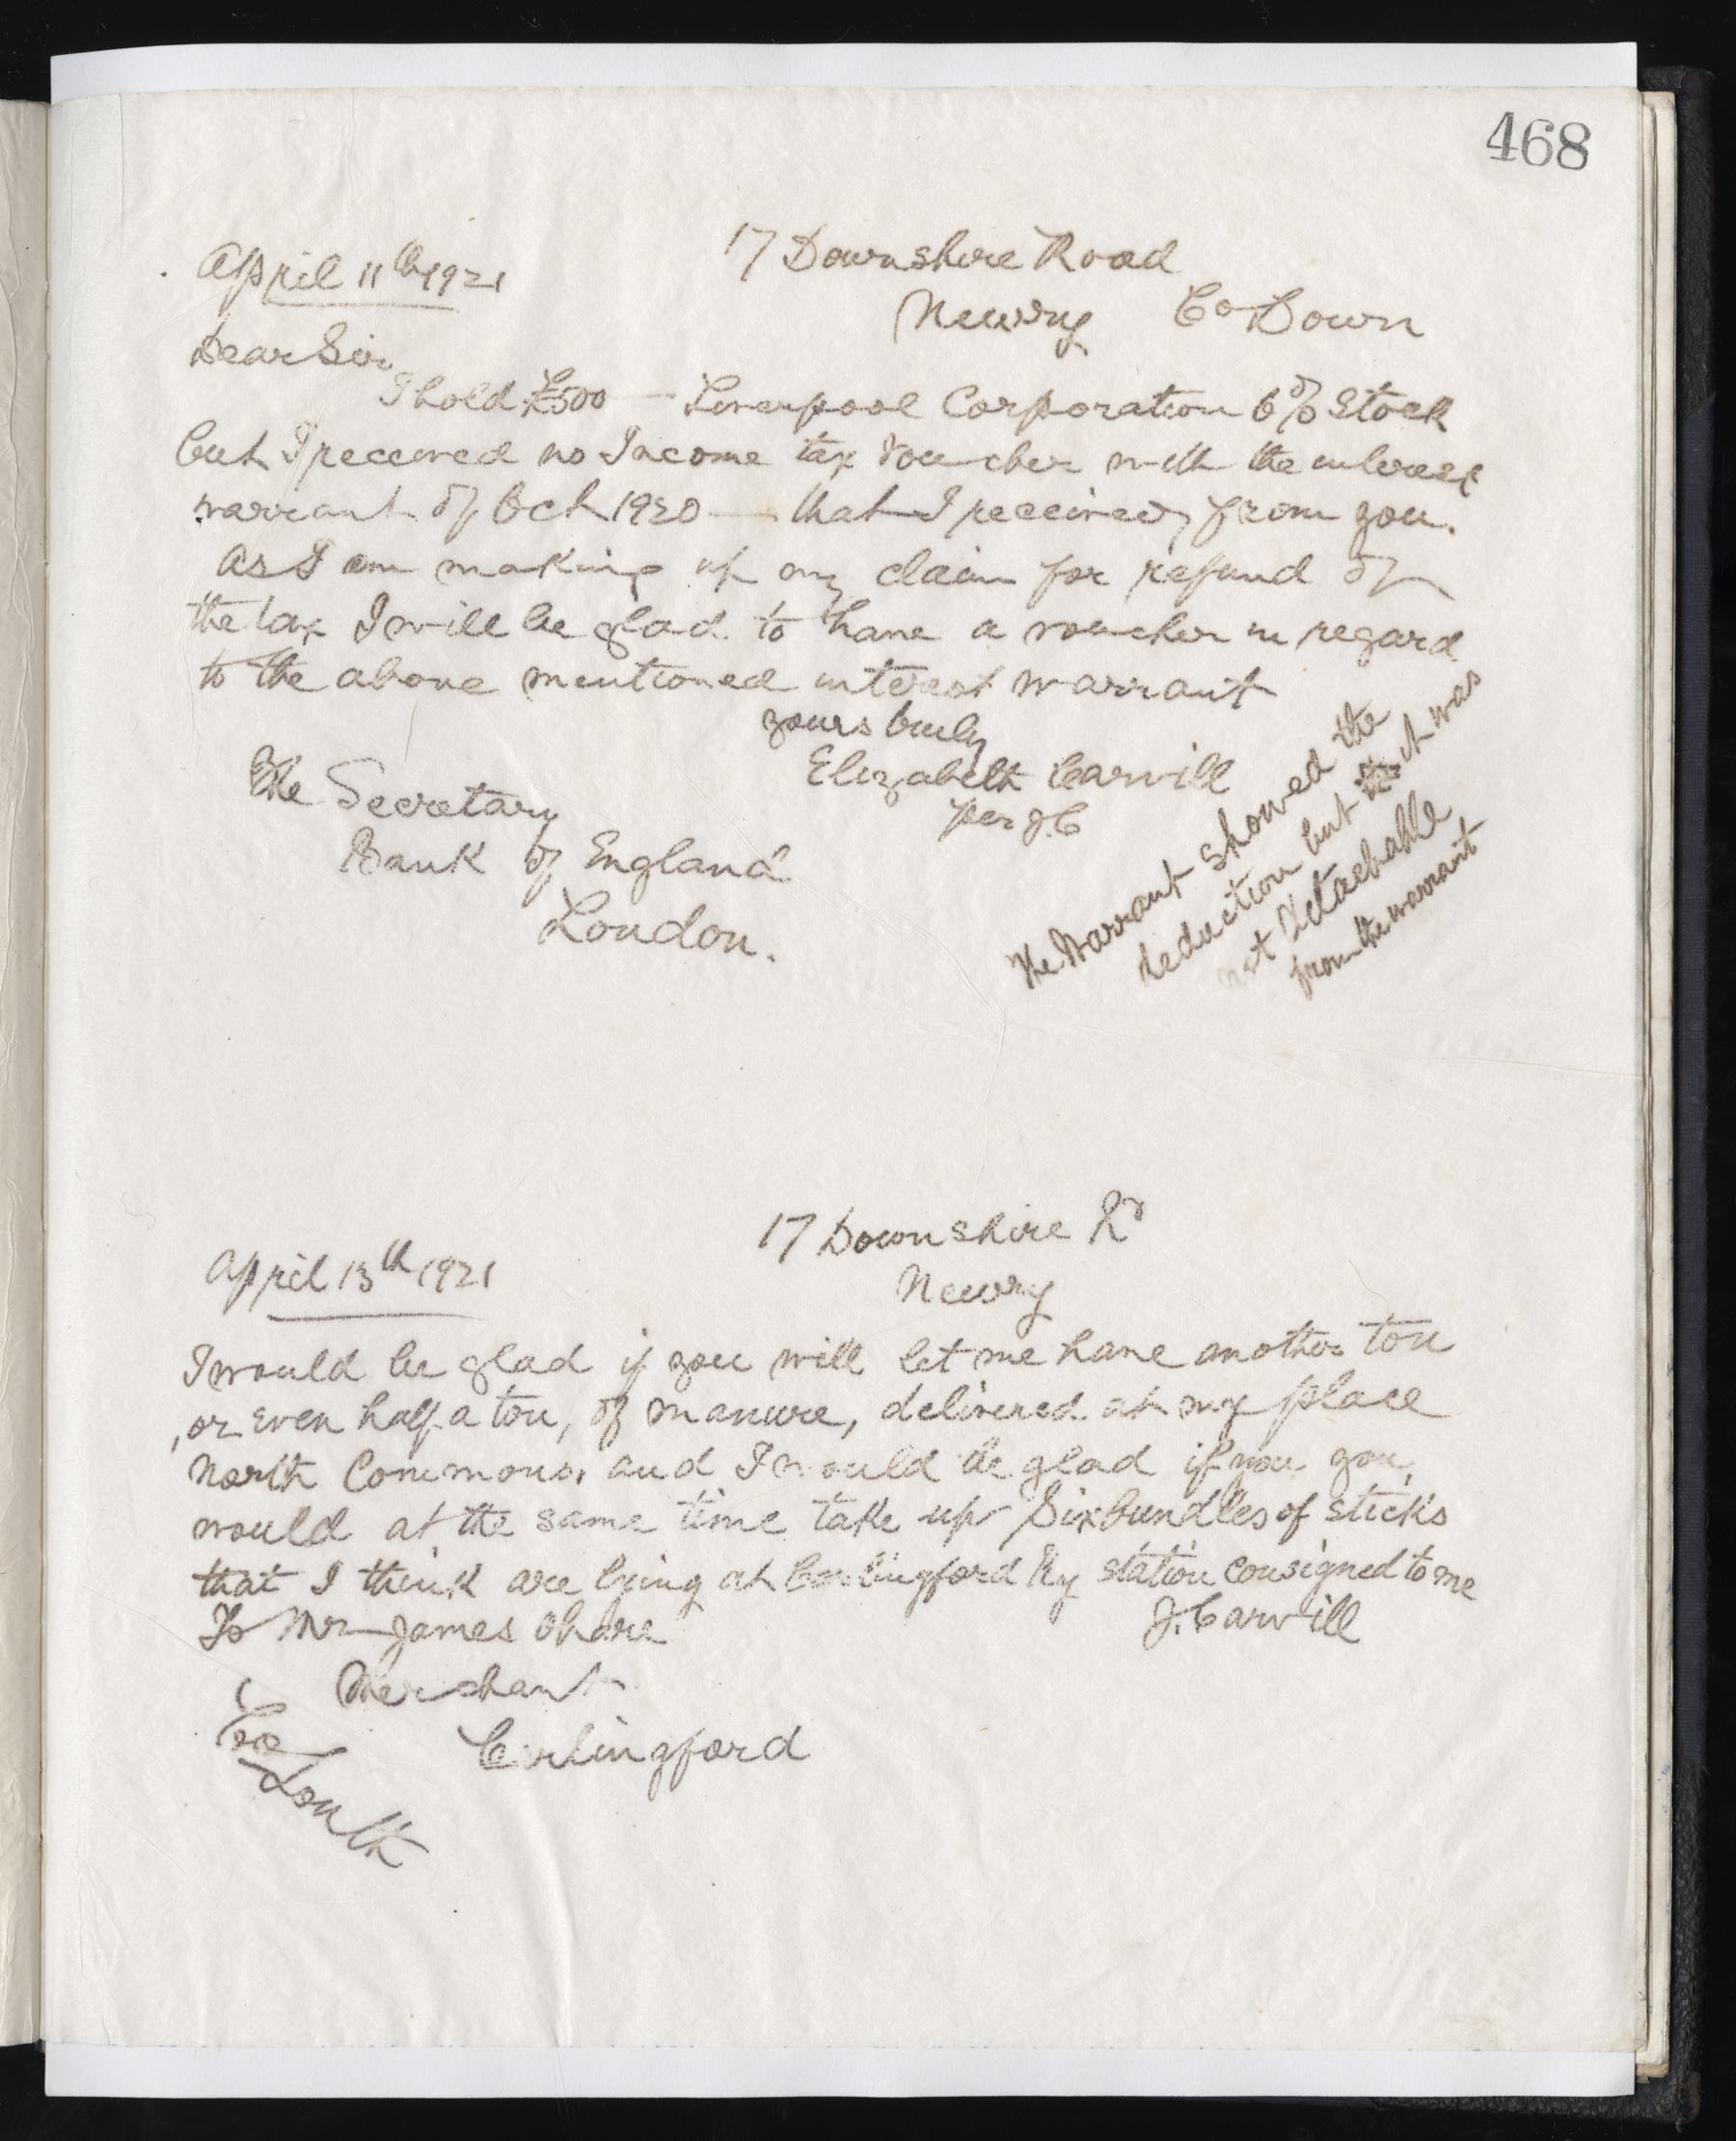 468
April 11th 1921
17 Downshire Road
Newry Co Down
Dear Sir,
I hold £500 — Liverpool Corporation 6% Stock
but I received no Income tax Voucher with the interest
warrant of Oct 1920 — that I received from you.
As I am making up my claim for refund of
the tax I will be glad to have a voucher in regard
to the above mentioned interest warrant
yours truly
Elizabeth Carvill
per J.C
The Secretary
Bank of England
London.
The Warrant showed the
deduction but it was
not detachable
from the warrant
17 Downshire Rd
April 13th 1921
Newry
I would be glad if you will let me have another ton
, or even half a ton, of manure, delivered at my place
North Commons, and I would be glad if you you,
would at the same time take up six bundles of sticks
that I think are lying at Carlingford Ry station consigned to me
To Mr James OHare
J. Carvill
Merchant
Carlingford
Co
Louth